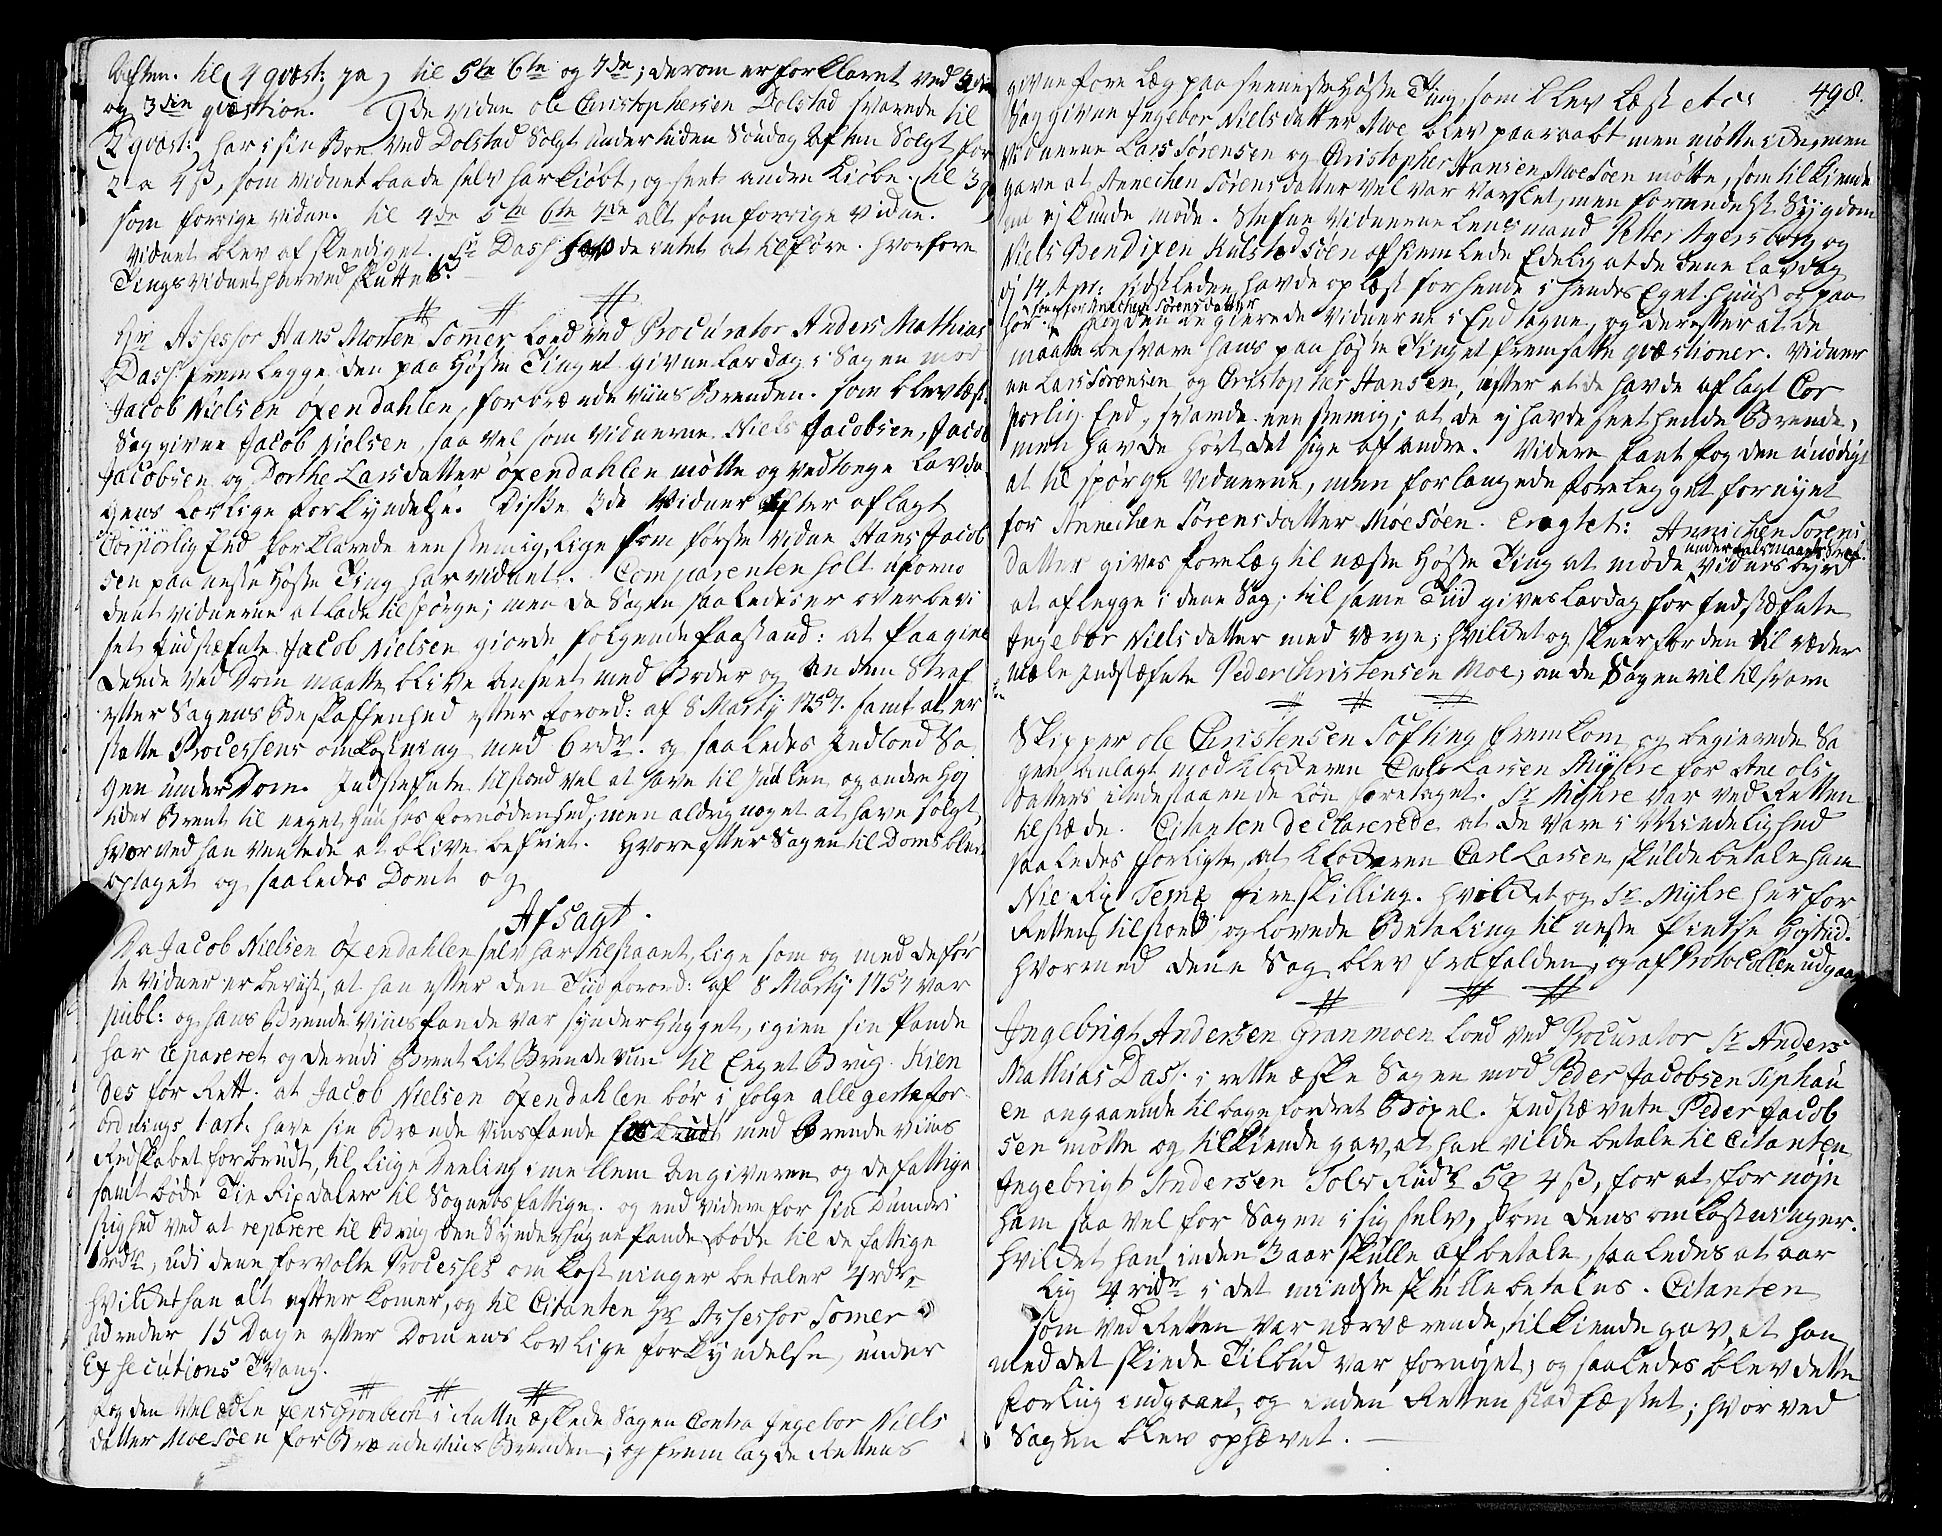 Aften. til 4 qvæst: ja, til 5te 6te og 7de; derom er forklaret ved 2den
og 3die qvæstion. 7de vidne Ole Christophersen Dolstad svarede til
2 qvæst: har i sin Boe ved Dolstad Solgt undertiden Søndag Aften Solgt for
2 a 4 ß, som vidnet baade selv har kiøbt, og seet andre kiøbe. til 3die
som forrige vidne. til 4de 5te 6te 7de alt som forrige vidne.
vidnet blev afskeediget. Sr Dass havde intet at tilføre. hvorfore
Tingsvidnet herved sluttes.
Hr Assessor Hans Morten Somer lod ved Procurator Anders Mathias
Dass fremlegge den paa Høste Tinget givne Lavdag i Sagen mod
Jacob Nielsen Øxendahlen, for brændeviins Brænden. som blev læst.
Saggivne Jacob Nielsen, saavel som vidnerne Niels Jacobsen, Jacob
Jacobsen og Dorthe Larsdatter Øxendahlen møtte og vedtoge Lavda
gens Lovlige forkyndelse. Disse 3de vidner efter aflagt
Corporlig Eed forklarede eenstemig, lige som første vidne Hans Jacob
sen paa neste Høste Ting har vidnet. Comparenten holt uforno
dent vidnerne at lade tilspørge; men da Sagen saaledes er overbevi
set Indstefnte Jacob Nielsen giorde følgende Paastand: at Paagiel
dende ved Dom maatte blive anseet med Bøder og anden Straf
efter Sagens Beskaffenhed efter forord: af 8 Martj 1757. samt at er
statte Processens omkostning med 6 rdr. og saaledes Indlod Sa
gen under Dom. Indstefnte tilstod vel at have til Juulen og andre Høj
tider Brent til eeget Huuses Fornødenhed, men aldrig noget at have solgt,
hvorved han ventede at blive befriet. Hvorefter Sagen til Doms blev
optaget og saaledes Dømt og
Afsagt.
Da Jacob Nielsen Øxendahlen selv har tilstaaet, lige som og med de før
te vidner er bevist, at han efter den Tiid forord: af 8 Martj 1757 var
publ: og hans Brændeviins Pande var sønderhugget, igien sin Pande
har repareret og derudi Brent lit Brændeviin til Eeget Brug. Kien
des for Rett. at Jacob Nielsen Øxendahlen bør i følge allegerte for
ordnings 1 art: have sin Brændeviins Pande med Brændeviins
Redskabet forbrudt, til liige Deeling imellem Angiveren og de fattige
samt bøde Tie Rixdaler til Sognets fattige. og end videre for sin Dumdri
stighed ved at reparere til Brug den Sønderhugne Pande, bøde til de fattige
1 rdr, udi denne forvolte Processes omkostninger betaler 4 rdr
hvilket han alt efterkomer, og til Citanten Hr Assessor Somer
udreder 15 Dage efter Domens lovlige forkyndelse, under
Execution's Tvang.
Fogden Velædle Jens Grønbech i Rette æskede Sagen Contra Ingebor Niels
datter Moesøen for Brændeviins Brænden; og fremlagde Rettens
498.
givne forelæg paa seeneste Høste Ting, som blev læst etc:
Saggivne Ingebor Nielsdatter Moe blev paaraabt men møtte icke, men
vidnerne Lars Sørensen og Christopher Hansen Moesøen møtte, som tilkiende
gave at Annechen Sørensdatter vel var varslet, men formedelst Sygdom
ej kunde møde. Stefne vidnerne Lensmand Petter Agersborg og
Niels Bendixen Kulstadsøen afhiemlede Edelig at de denne lavdag
dj 14 Apr: sidstleden, havde oplæst for hende i hendes Eget Huus og paa
hør. Fogden begierede vidnerne i Eed tagne, og derefter at de
som for Annechen Sørensdatter
maatte besvare hans paa Høste Tinget fremsatte qvæstioner. Vidner
ne Lars Sørensen og Christopher Hansen, efter at de havde aflagt Cor
porlig Eed, svarede eenstemig; at de ej havde seet hende Brende,
men havde hørt det sige af andre. Videre fant Fogden unødigt
at tilspørge vidnerne, men forlangede forelegget fornyet
for Annechen Sørensdatter Moesøen. Eragtet: Annichen Sørens
datter gives forelæg til næste Høste Ting at møde vidnesbyrd
under Falsmaals Straf
at aflegge i denne Sag; til samme Tiid gives lavdag for Indstefnte
Ingebor Nielsdatter med værge; hvilket og skeer for den til væder
mæle Indstefnte Peder Christensen Moe, om de Sagen vil tilsvare
Skipper Ole Christensen Søfting fremkom og begierede Sa
gen anlagt mod Klockeren Carl Larsen Myhre for Ane Ols
datters inde staaende Løn foretaget. Sr Myhre var ved Retten
tilstæde. Citanten declarerede at de vare i Mindelighed
saaledes forligte, at Klockeren Carl Larsen skulde betale ham
Nie Rix Temt fire skilling. hvilket og Sr Myhre her for
Retten tilstod, og lovede Betaling til neste Pintse Høitiid.
hvormed denne Sag blev frafalden, og af Protocollen udgaaer
Ingebrigt Andersen Granmoen lod ved Procurator Sr Anders
Mathias Dass i rette æske Sagen mod Peder Jacobsen Tiphau
en angaaende tilbagefordret Bøxel. Indstævnte Peder Jacob
sen møtte og tilkiende gav, at han vilde betale til Citanten
Ingebrigt Andersen Tolv Rixdr 5 4 ß, for at fornøje
ham saavel for Sagen i sig selv, som dens omkostninger.
hvilket han inden 3 aar skulle afbetale, saaledes at aar
lig 4 rdr i det mindste skulle betales. Citanten
som ved Retten var nærværende, tilkiende gav, at han
med det skiede Tilbud var fornøjet; og saaledes blev dette
Forliig indgaaet, og inden Retten stadfæstet; hvorved
Sagen blev ophævet.